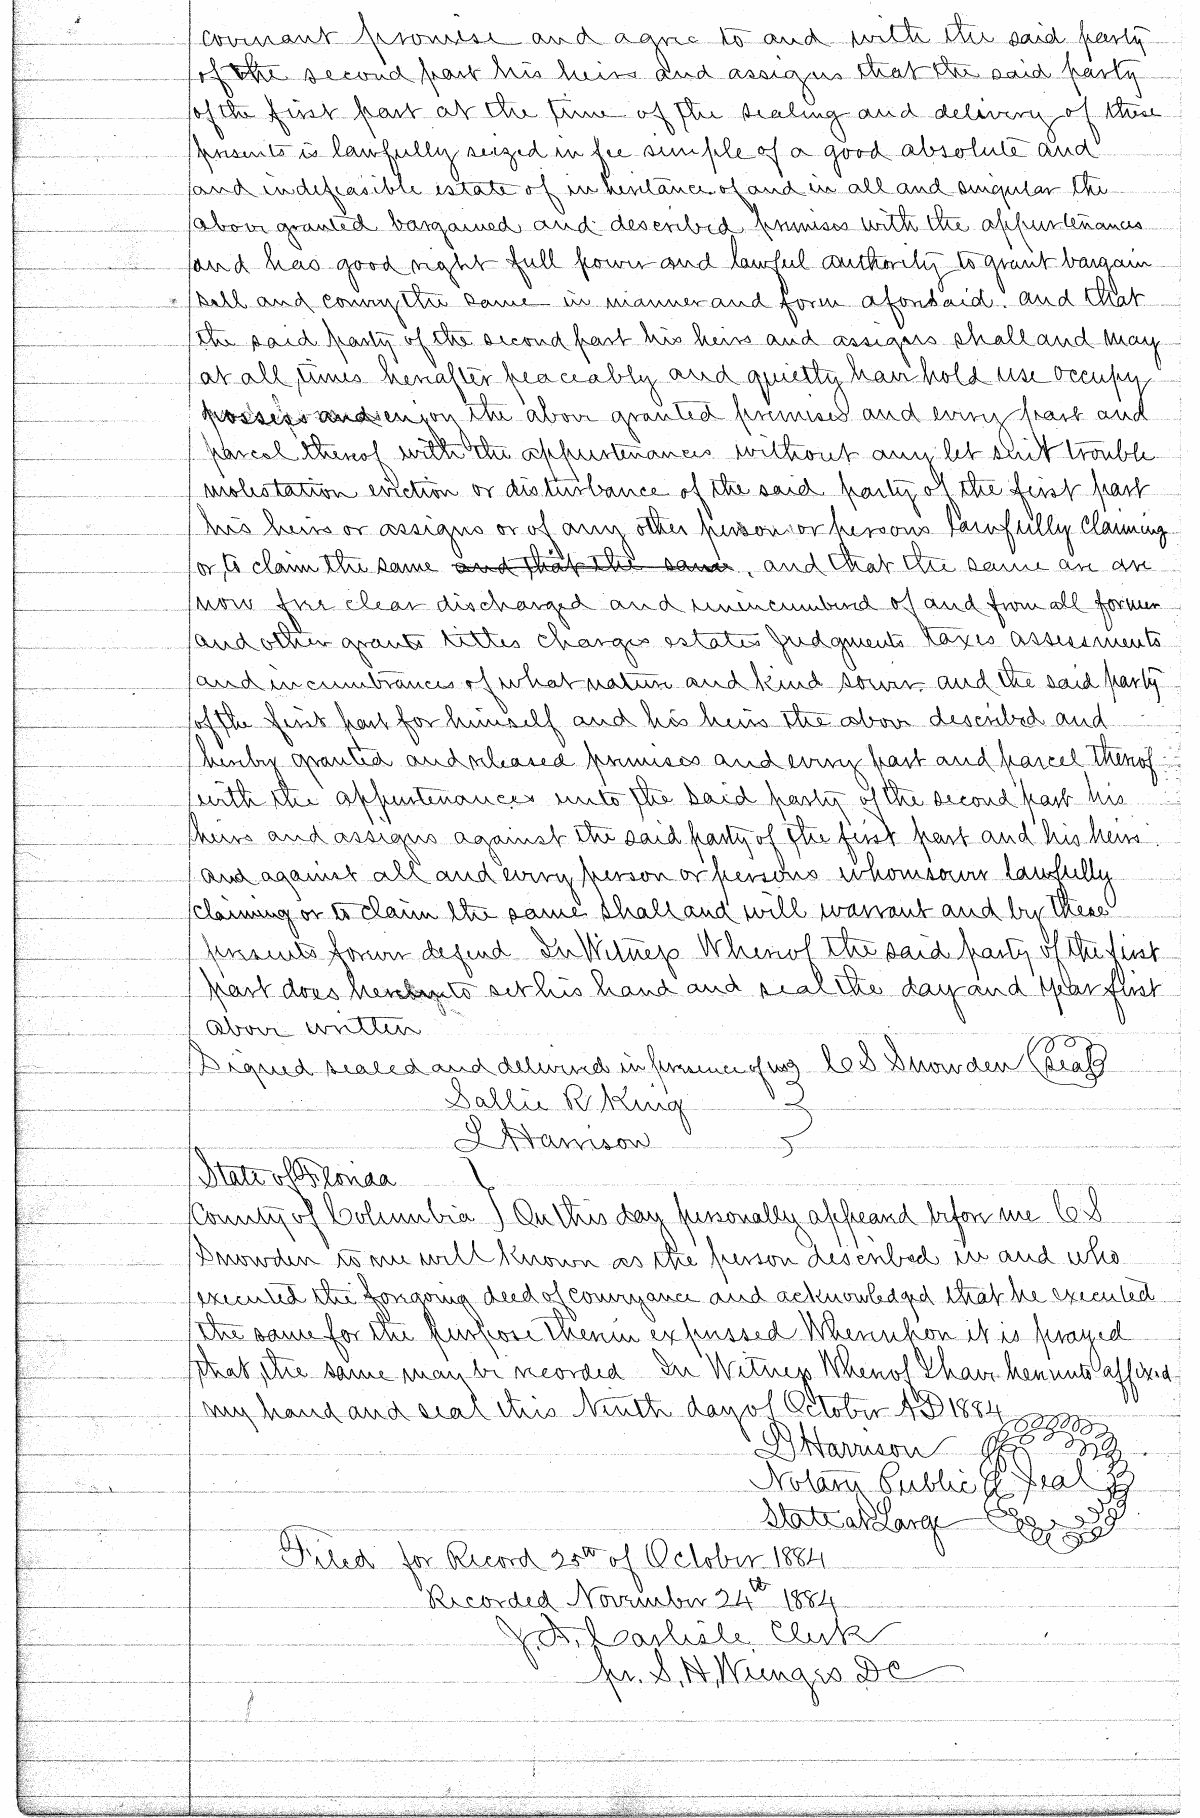 covenant promise and agree to and with the said party
of the second part his heirs and assigns that the said party
of the first part at the time of the sealing and delivery of these
presents is lawfully seized in fee simple of a good absolute and
and indefeasible estate of inheritance of and in all and singular the
above granted bargained and described premises with the appurtenances
and has good right full power and lawful authority to grant bargain
sell and convey the same in manner and form aforesaid. and that
the said party of the second part his heirs and assigns shall and may
at all times hereafter peaceably and quietly have hold use occupy
possess and enjoy the above granted premises and every part and
parcel thereof with the appurtenances without any let suit trouble
molestation eviction or disturbance of the said party of the first part
his heirs or assigns or of any other person or persons lawfully claiming
or to claim the same and that the same, and that the same are are
now free clear discharged and unincumbered of and from all former
and other grants titles charges estates judgments taxes assessments
and incumbrances of what nature and kind soever and the said party
of the first part for himself and his heirs the above described and
hereby granted and released premises and every part and parcel thereof
with the appurtenances unto the said party of the second part his
heirs and assigns against the said party of the first part and his heirs
and against all and every person or persons whomsoever lawfully
claiming or to claim the same shall and will warrant and by these
presents forever defend In Witness Whereof the said party of the first
part does hereunto set his hand and seal the day and year first
above written
Signed sealed and delivered in presence of us } C S Snowden (seal)
Sallie R King
L Harrison
State of Florida
County of Columbia } On this day personally appeared before me C S
Snowden to me well known as the person described in and who
executed the foregoing deed of conveyance and acknowledged that he executed
the same for the purpose therein expressed Whereupon it is prayed
that the same may be recorded In Witness Whereof I have hereunto affixed
my hand and seal this Ninth day of October A D 1884
L Harrison
Notary Public Seal
State at Large
Filed for Record 25th of October 1884
Recorded November 24th 1884
J. A. Carlisle Clerk
pr. S. H. DC